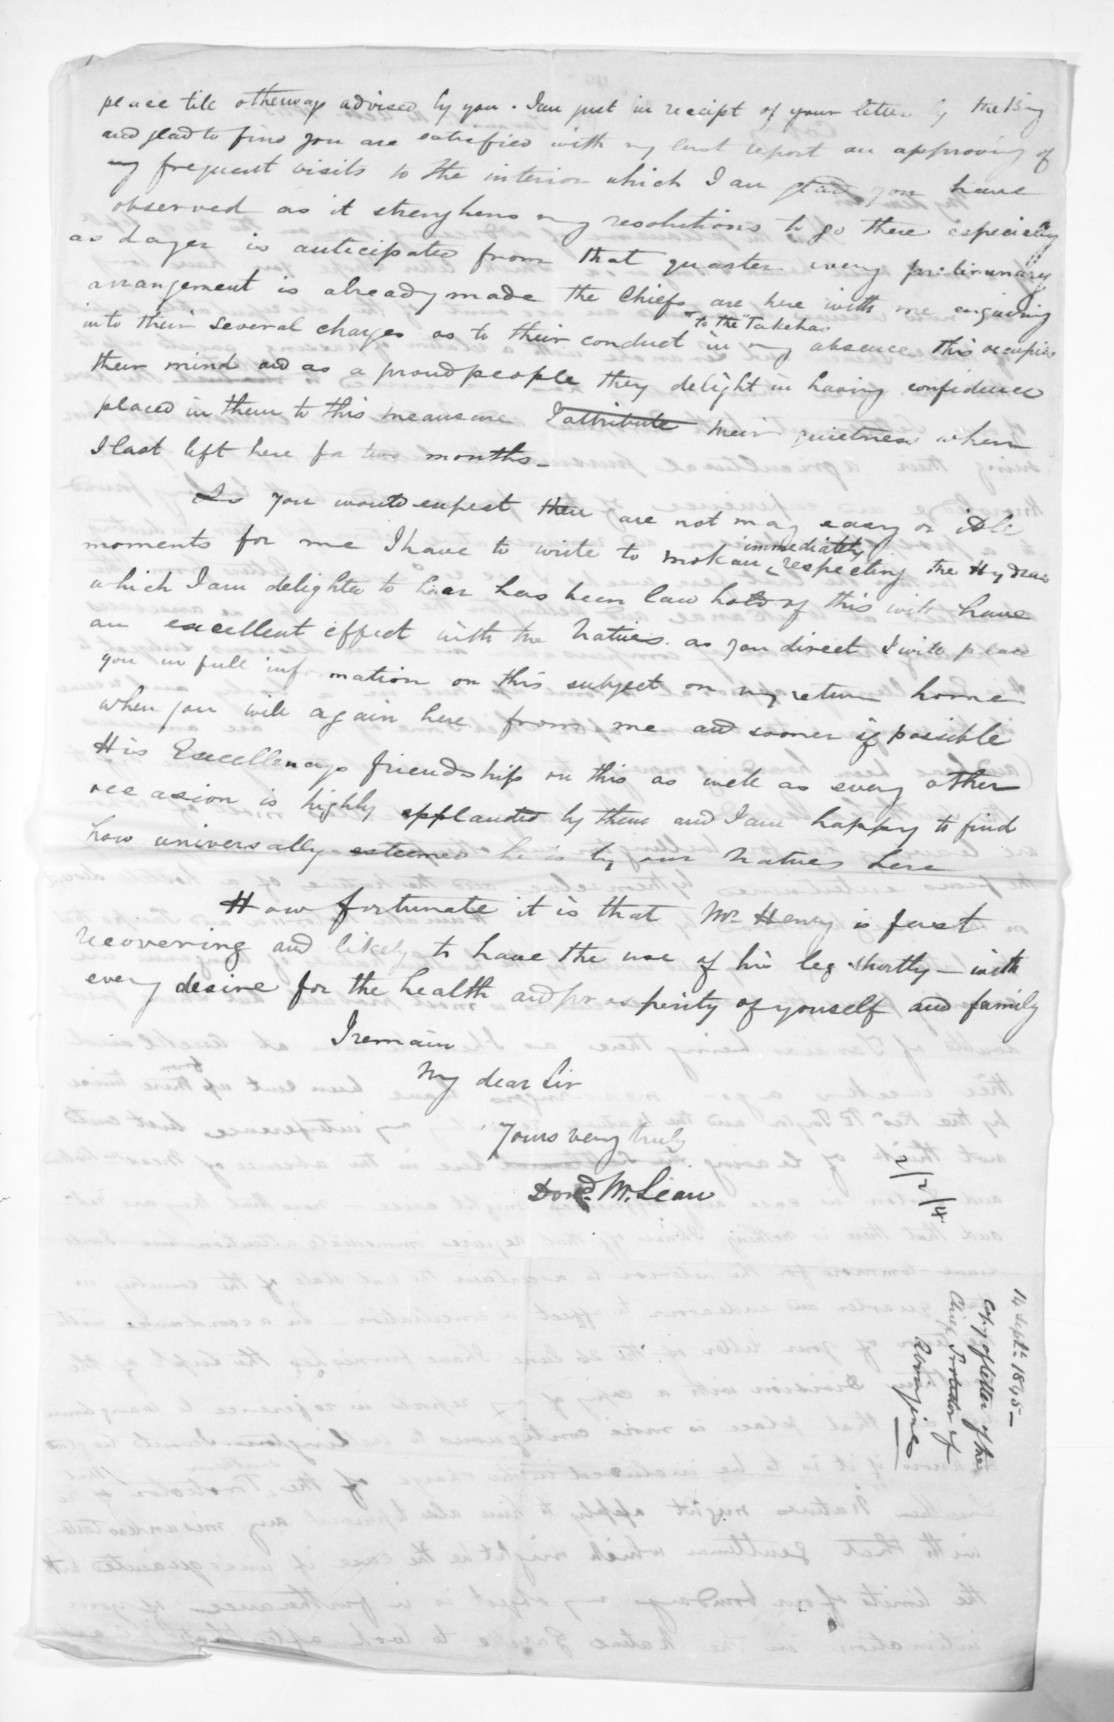 peace till otherways advised by you. I am just in receipt of your letter by the Brig
and glad to find you are satisfied with my last report an approving of
my frequent visits to the interior which I am glad you have
observed as it strenghens my resolutions to go there especially
as dager is anticipated from that quarter. every preliminary
arrangement is already made the Chiefs are here with me enquiring
into their several charges as to their conduct "to the Pakeha" in my absence this occupies
their mind and as a proud people they delight in having confidence
placed in them to this meansure I attribute their quietness when
I last left here for two months.
As you would expect there are not many easy or idle
moments for me I have to write to Mokau immediately respecting the Hydrus
which I am delighted to hear has been law hold of this will have
an excellent effect with the Natives. as you direct I will place
you in full information on this subject on my return home
when you will again here from me and sooner if possible
His Excellencys friendship on this as well as every other
occasion is highly applauded by them and I am happy to find
how universally esteemed he is by our Natives here
How fortunate it is that Mr Henry is fast
recovering and likely to have the use of his leg shortly - with
every desire for the health and prosperity of yourself and family
I remain
My dear Sir
Yours very truly
Dond. McLean
2/2/4
14 Septr. 1845 -
Copy of letter of the
Chief Protector of
Aborigines